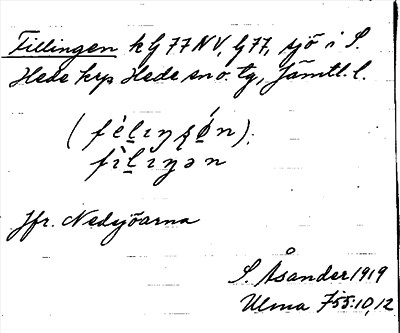 Fillingen k G 77 NV, G 77, sjö i S.
Hede krp Hede sn o. tg, Jämtl. l.
(fèlɩŋʂón).
fìlɩŋən
Jfr. Nedsjöarna
S. Åsander 1919
Ulma 755:10,12